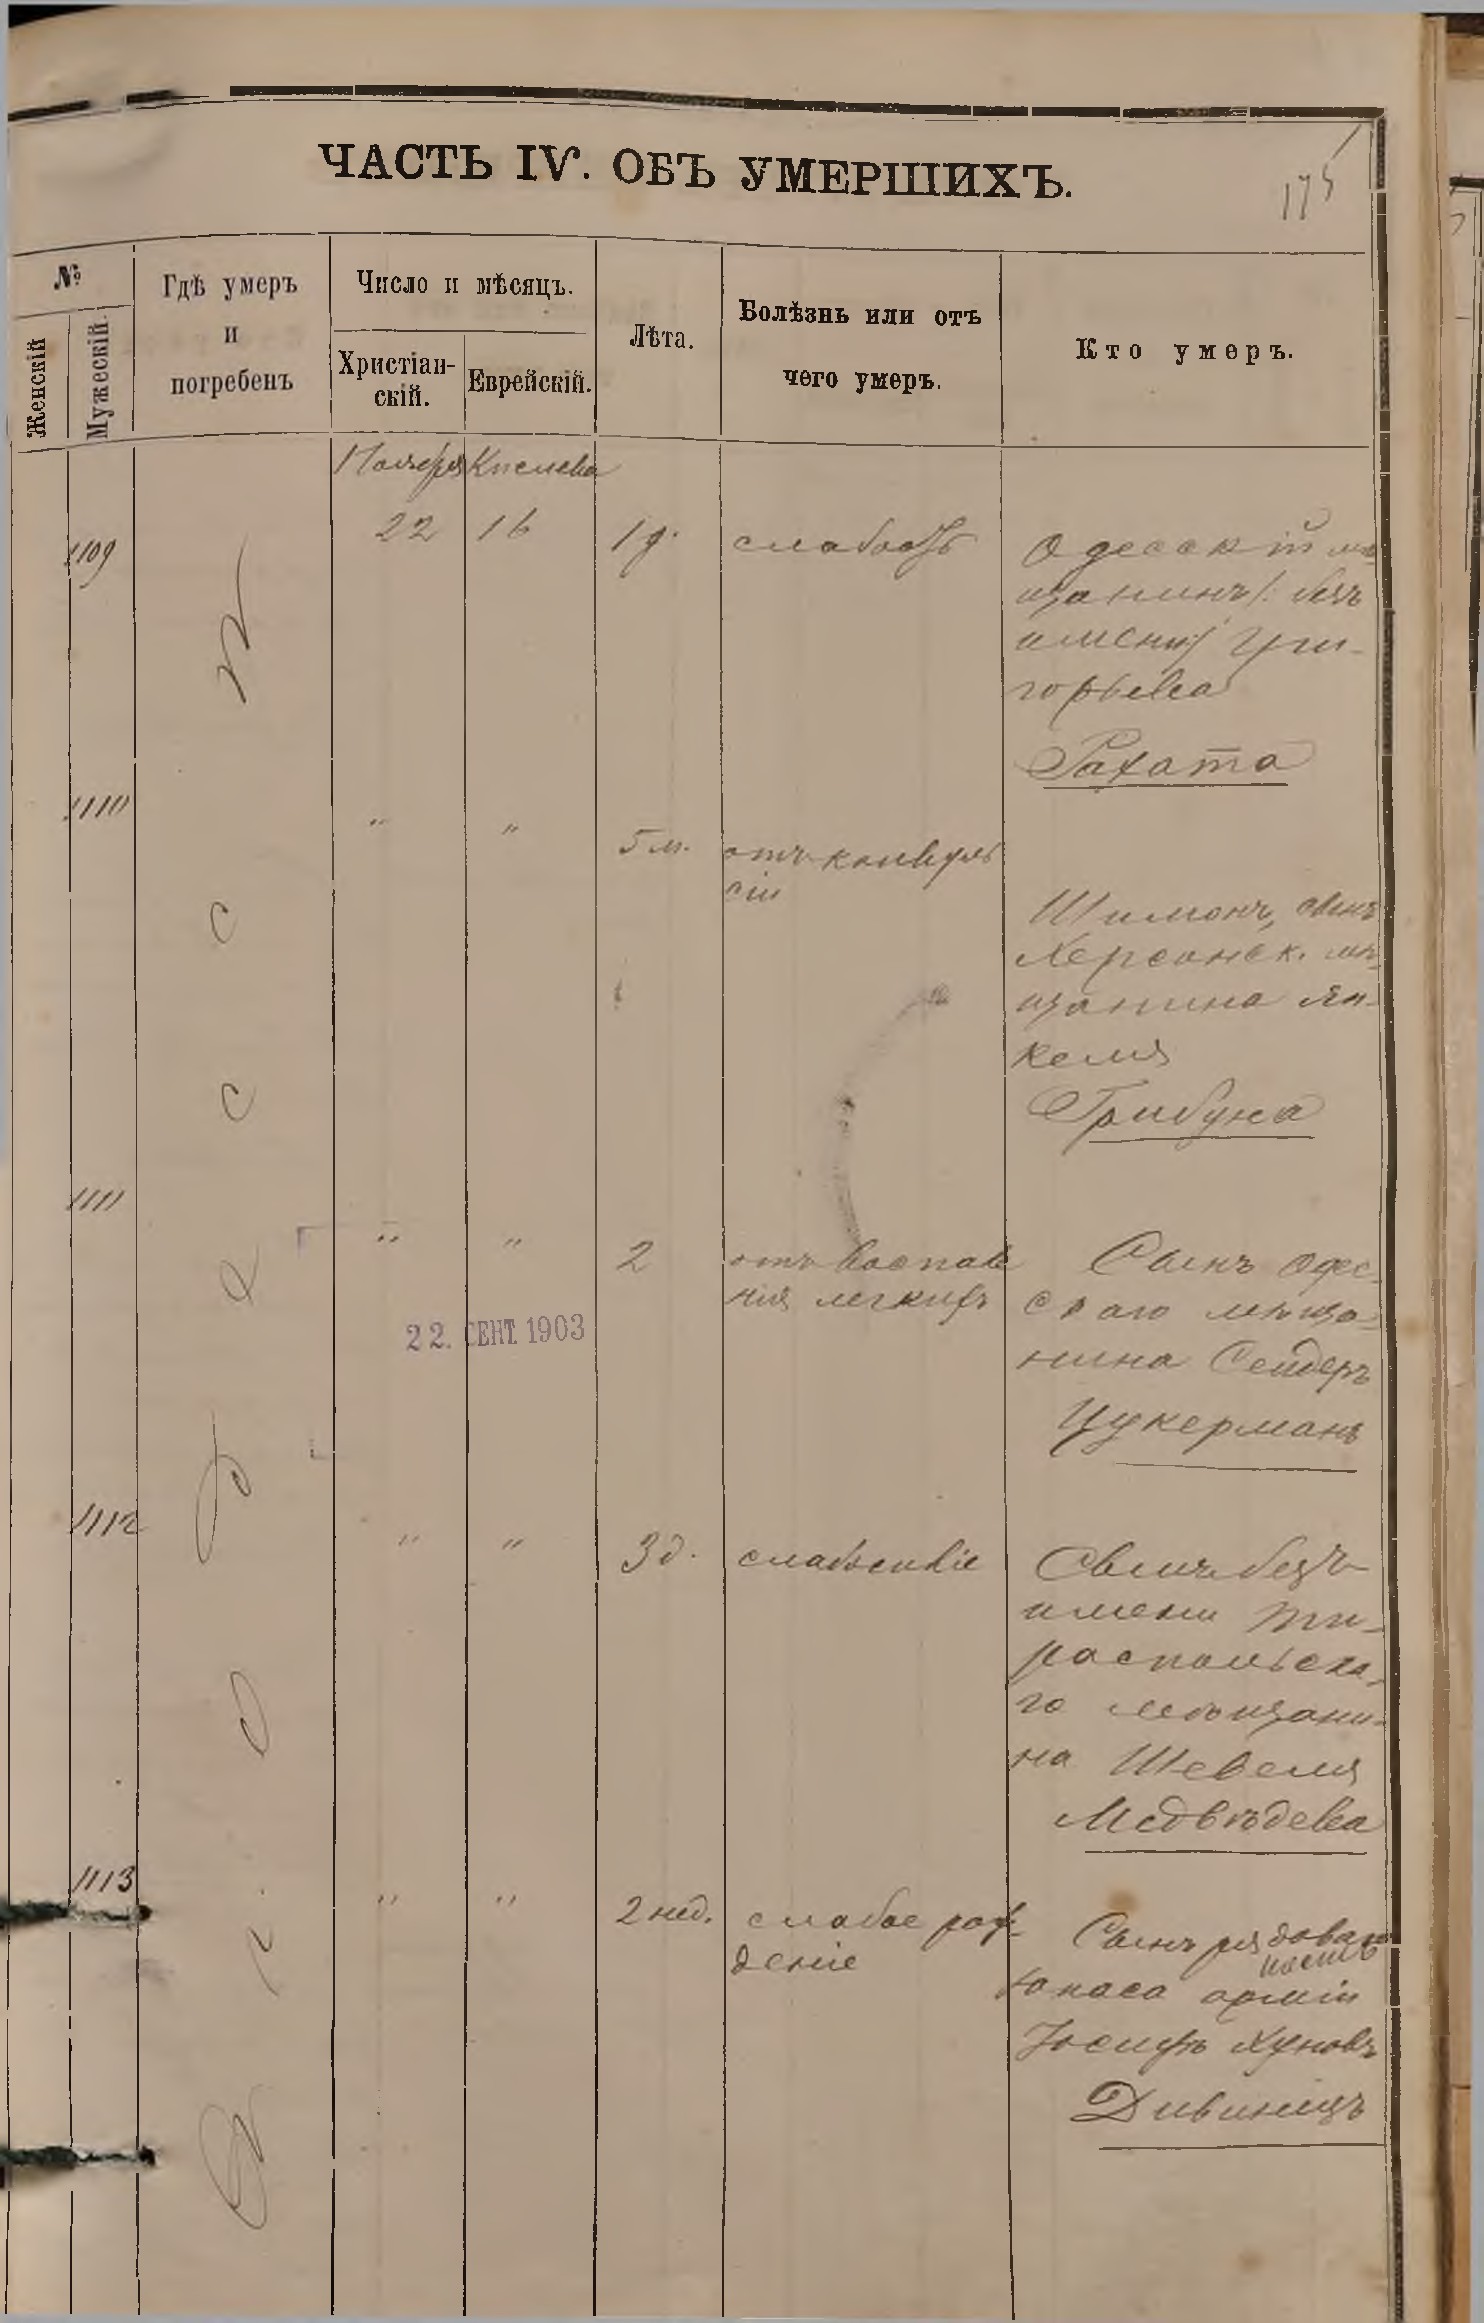 ЧАСТЬ IV. ОБЪ УМЕРШИХЪ.
175
№
Женскій
Мужескій.
Гдѣ умеръ
и
погребенъ
Число и мѣсяцъ.
Христіан-
скій.
Еврейскій.
Лѣта.
Болѣзнь или отъ
чего умеръ.
Кто умеръ.
Ноября Кислева
1109
22 16 1 д. слабость
Одесскій мѣ
щанинъ /: безъ
имени / Гри-
горьева
Рахата
1110
" " 5 м. отъ конвуль
сіи
Шимонъ, сынъ
Херсонск. мѣ-
щанина Ян-
келя
Грибуна
1111
" " 2 отъ воспале
нія легкихъ
Сынъ Одес-
скаго мѣща-
нина Сендеръ
Цукерманъ
22. СЕНТ. 1903
1112
" " 3 д. слабость
Сынъ безъ
имени Ти-
распольска-
го мѣщани-
на Шевеля
Медвѣдева
1113
" " 2 нед. слабое рож-
деніе
Сынъ рядоваго
запаса арміи
Іосифъ
Дивинецъ